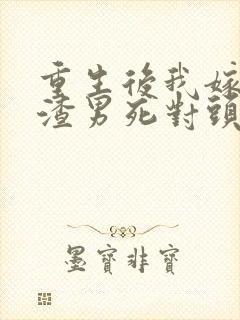 重生後我嫁
渣男死對頭
墨寶非寶